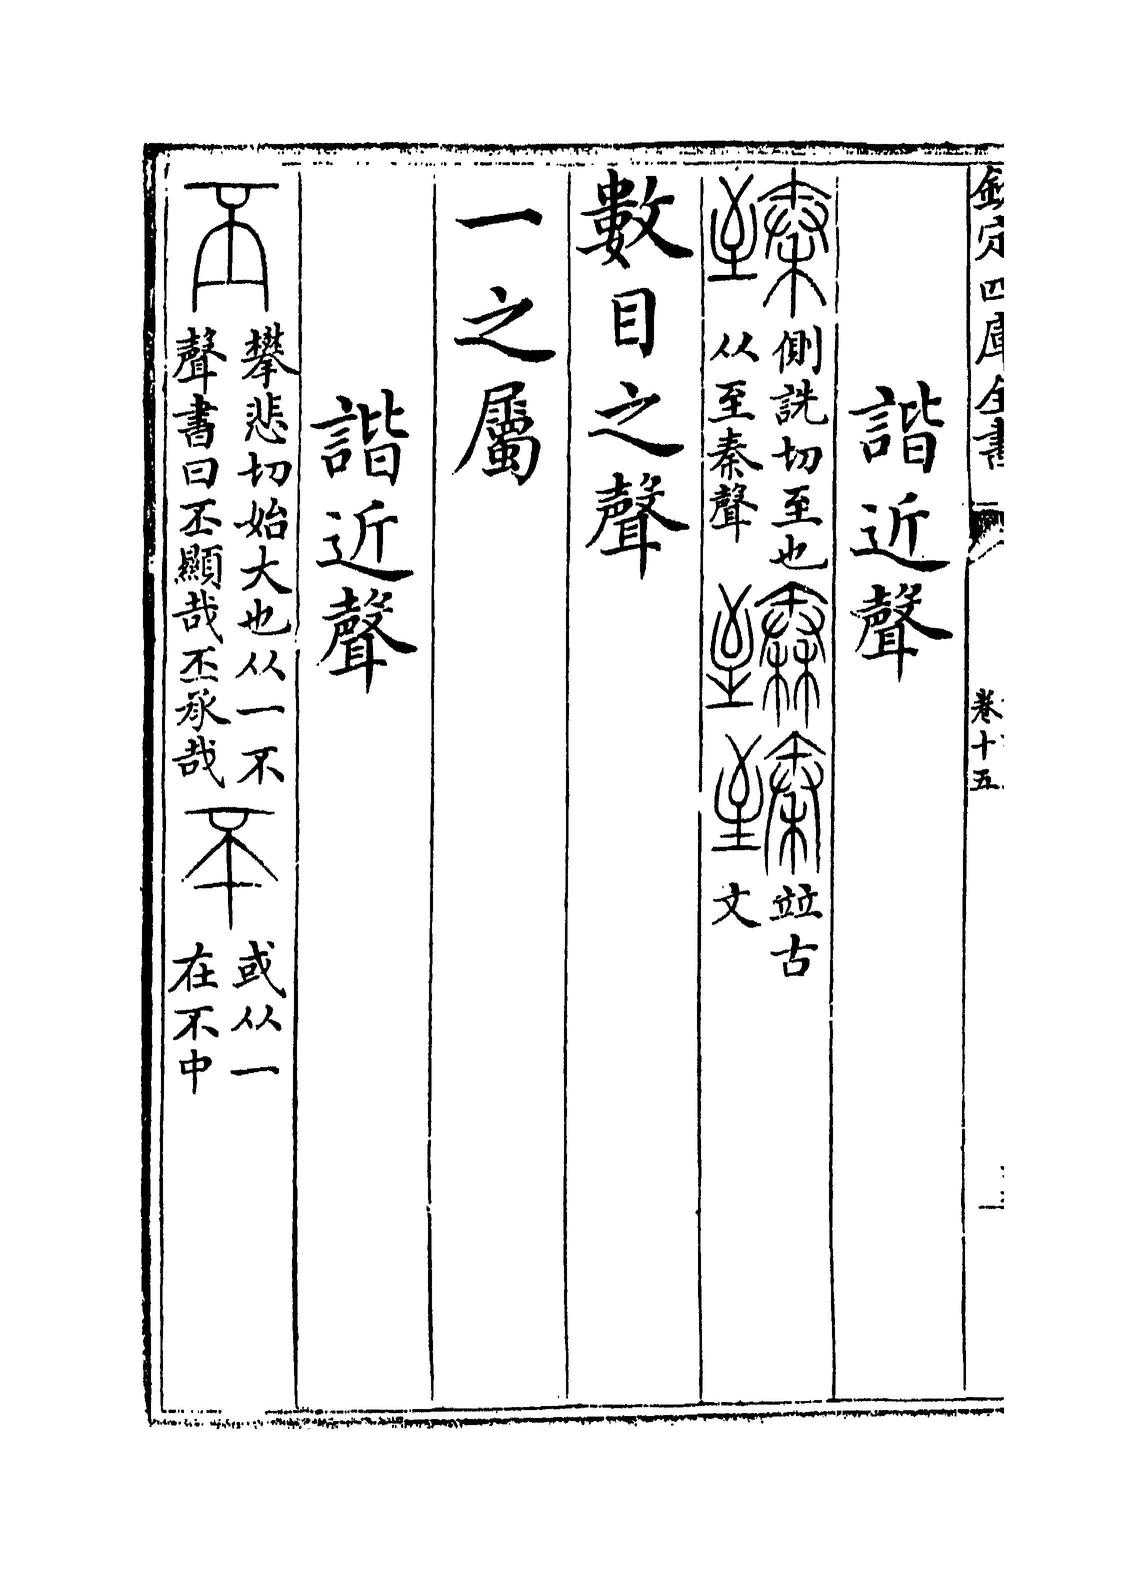 欽定四庫全書
卷十五
諧近聲
臻側詵切至也从至秦聲𦤶𦤶竝古文
數目之聲
一之屬
諧近聲
丕攀悲切始大也从一不聲書曰丕顯哉丕承哉㔻或从一在不中